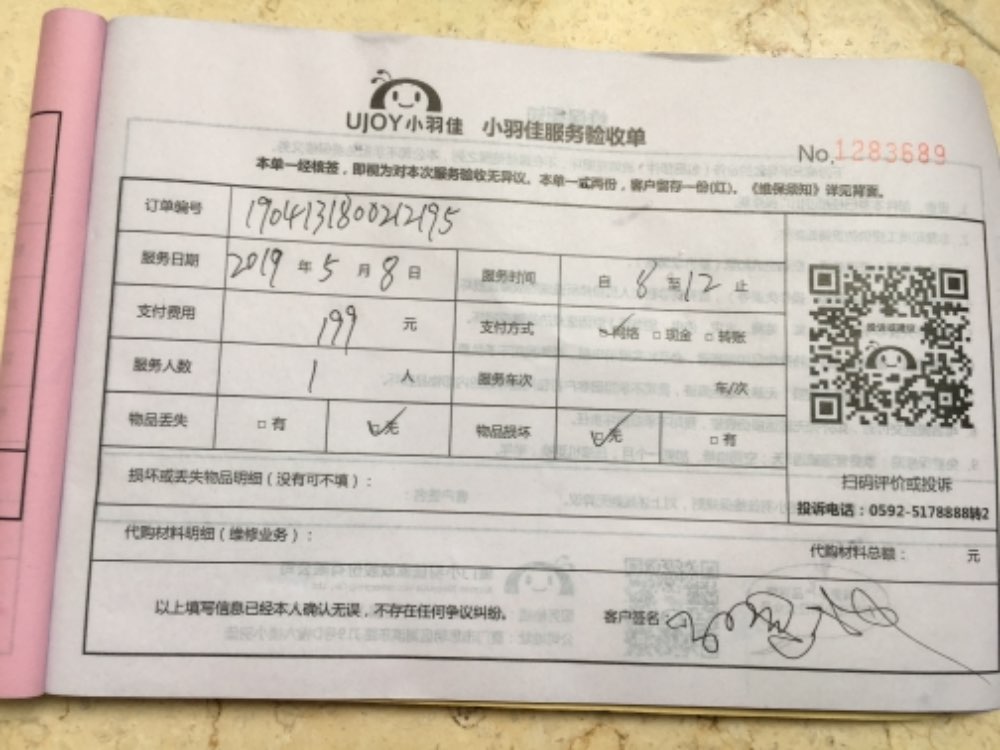 UJOY小羽佳 小羽佳服务验收单
No.1283689
本单一经核签，即视为对本次服务验收无异议。本单一式两份，客户留存一份(红)。《维保须知》详见背面。
订单编号 1904131800212195
服务日期 2019 年 5 月 8 日 服务时间 自 8 至 12 止
支付费用 199 元 支付方式 ☑网络 □现金 □转账
服务人数 1 人 服务车次 车/次
物品丢失 □有 ☑无 物品损坏 ☑无 □有
损坏或丢失物品明细（没有可不填）：
扫码评价或投诉
投诉电话：0592-5178888转2
代购材料明细（维修业务）：
代购材料总额： 元
以上填写信息已经本人确认无误，不存在任何争议纠纷。
客户签名